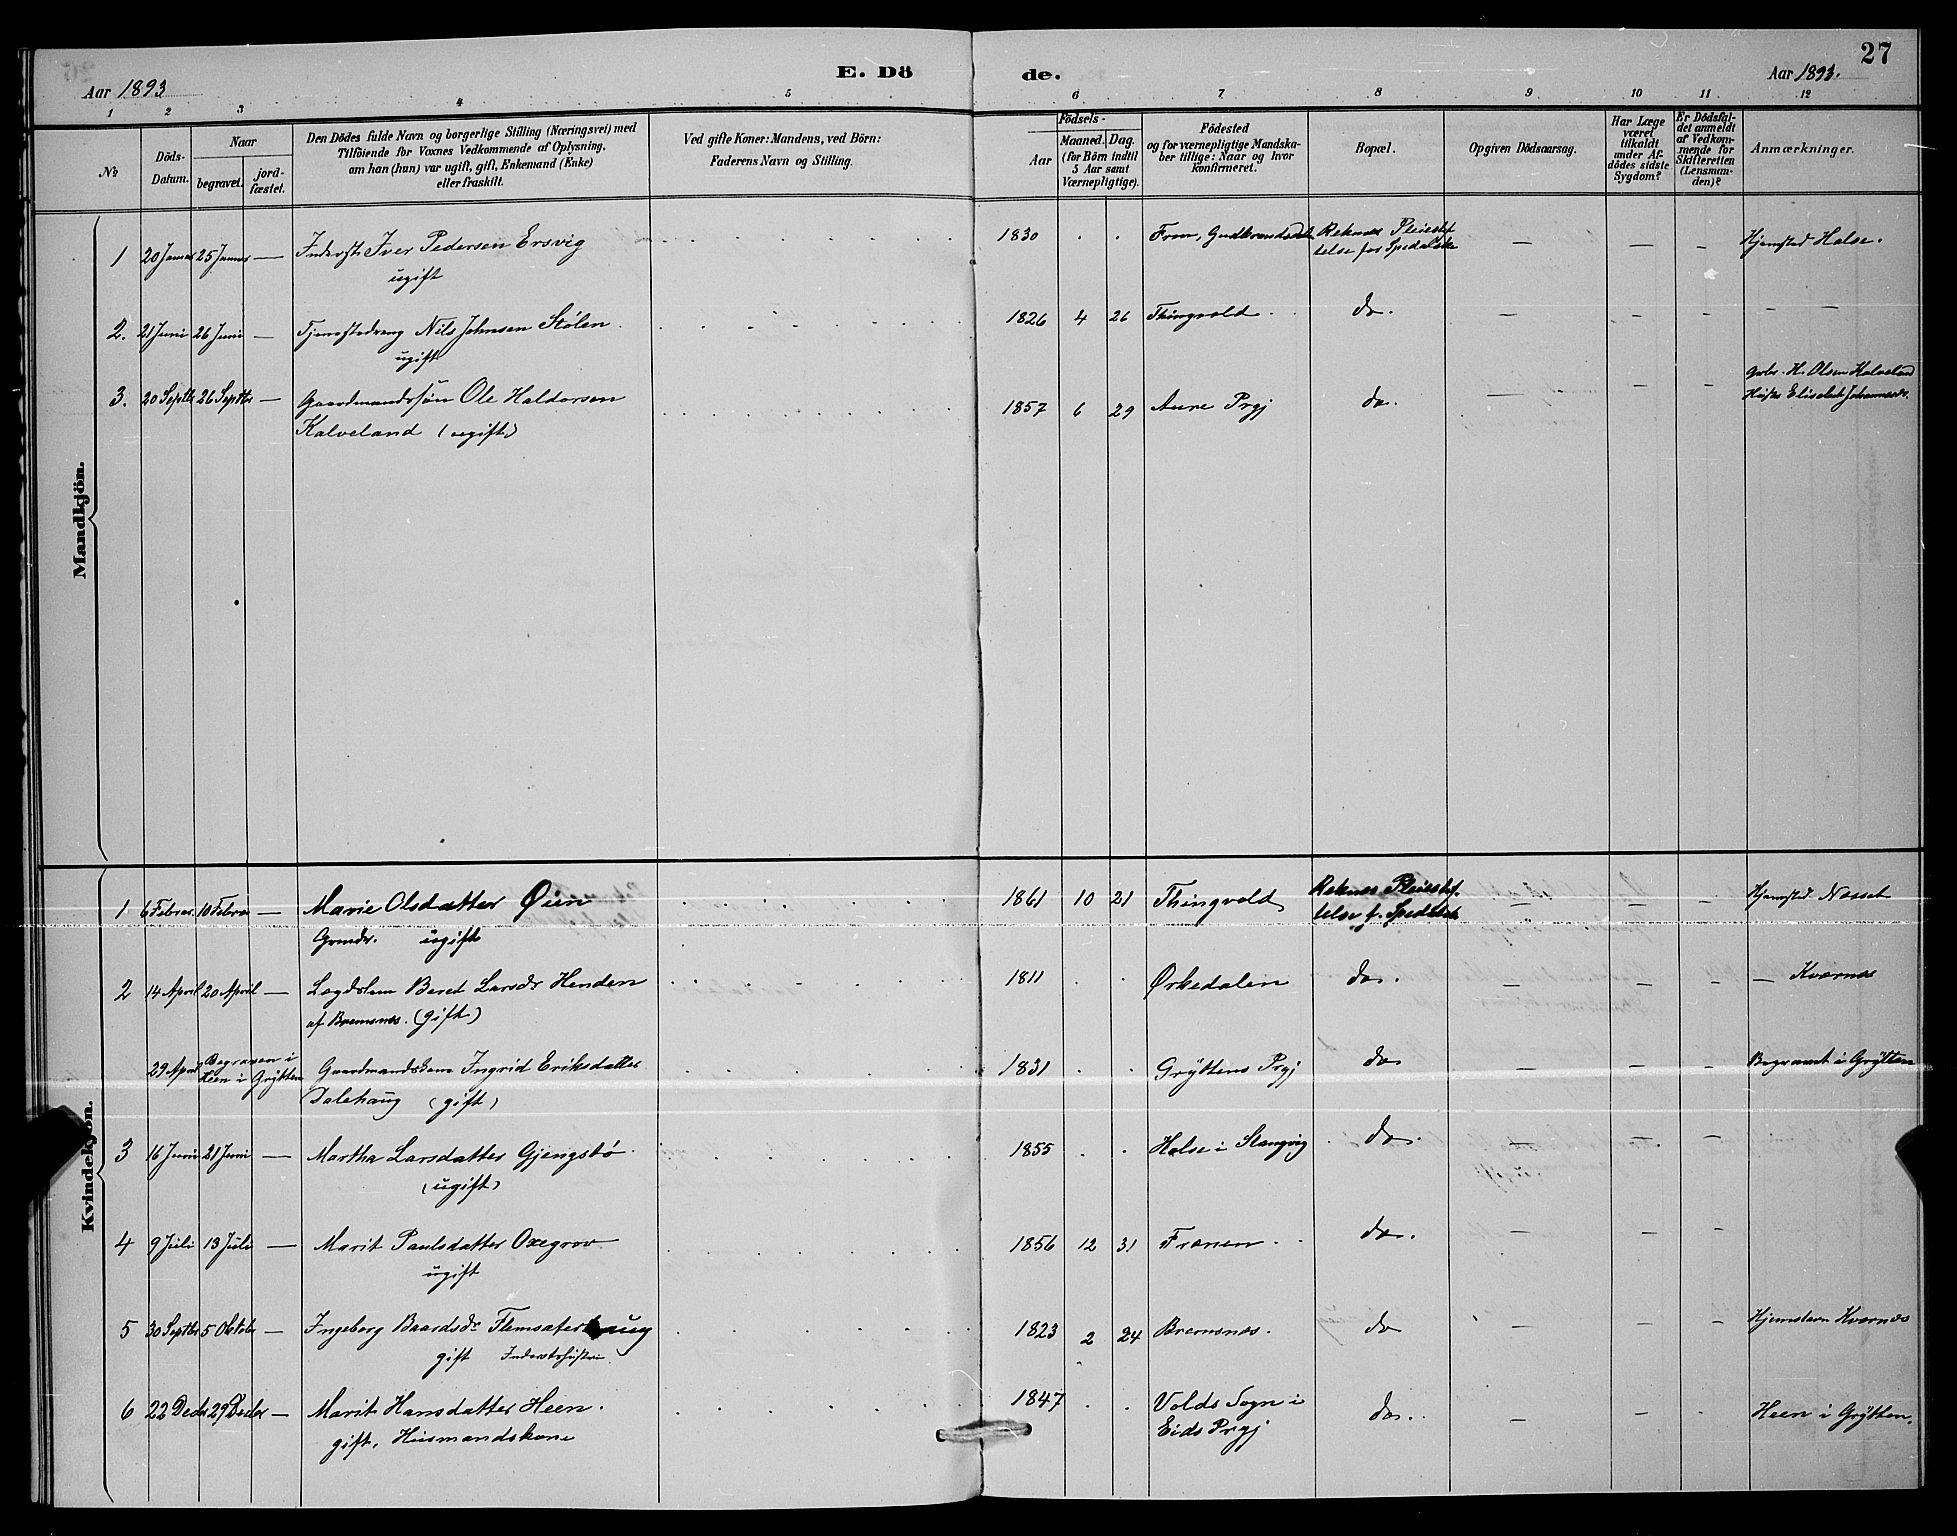 E. Dö de.
27
Aar 1893
Aar 1893.
1 2 3 4 5 6 7 8 9 10 11 12
No
Döds-Datum.
Naar
begravet.
jord-fæstet.
Den Dödes fulde Navn og borgerlige Stilling (Næringsvei) med
Tilföiende for Voxnes Vedkommende af Oplysning,
om han (hun) var ugift, gift, Enkemand (Enke)
eller fraskilt.
Ved gifte Koner: Mandens, ved Börn:
Faderens Navn og Stilling.
Födsels-
Aar
Maaned. Dag.
(for Börn indtil
5 Aar samt
Værnepligtige).
Födested
og for værnepligtige Mandska-
ber tillige: Naar og hvor
konfirmeret.
Bopæl.
Opgiven Dödsaarsag.
Har Læge
været
tilkaldt
under Af-
dödes sidste
Sygdom?
Er Dödsfal-
det anmeldt
af Vedkom-
mende for
Skifteretten
(Lensman-
den)?
Anmærkninger.
Mandkjön.
1 20 Januar 25 Januar — Inderst Iver Pedersen Ersvig 1830 . . Fron, Gudbrandsdalen Reknæs Pleiestif — — — Hjemsted Halse.
ugift telse for Spedalske
2. 21 Juni 26 Juni — Tjenestedreng Nils Johnsen Stölen. 1826 4 26 Thingvold do. — — — —
ugift
3. 20 Septbr 26 Septbr — Gaardmandssön Ole Haldorsen 1857 6 29 Aure Prgj do. — — — Gbr. H. Olsen Kalveland
Kalveland (ugift) Hustru Elisabet Johannesdr.
Kvindekjön.
1 6 Febrar. 10 Februar — Marie Olsdatter Öien 1861 10 21 Thingvold Reknæs Pleiestif- — — — Hjemsted Nesset
ugift telse f. Spedalsk
2 14 April 20 April — Lægdslem Beret Larsdr Henden 1811 . . Örkedalen do. — — — — Kværnæs
af Bremsnæs. (gift)
29 April Begraven i Heen i Grytten Gaardmandskone Ingrid Eriksdatter 1831 . . Gryttens Prgj do — — — Begravet i Grytten
Dalehaug (gift)
3 16 Juni 21 Juni — Martha Larsdatter Gjengstö 1855 . . Halse i Stangvig do. — — —
(ugift)
4 9 Juli 13 Juli — Marit Paulsdatter Oxegrov 1856 12 31 Frænen do. — — —
ugift
5 30 Septbr 5 Oktobr — Ingeborg Baardsdr Flemsæterhaug 1823 2 24 Bremsnæs. do — — — Hjemstavn Kvernæs
gift Inderstshustru
6 22 Decbr 29 Decbr — Marit Hansdatter Heen. 1847 . . Volds Sogn i do. — — Heen i Grytten.
gift, Husmandskone Eids Prgj